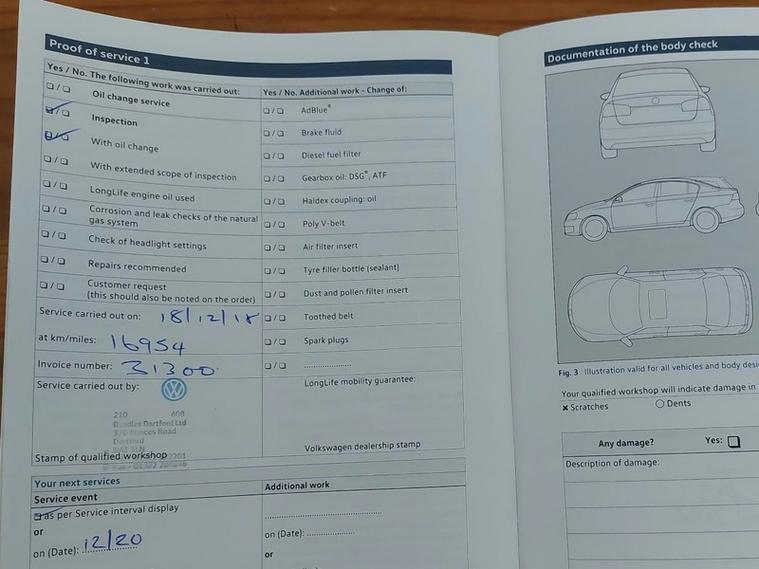 Proof of service 1
Yes / No. The following work was carried out:
Oil change service
Inspection
With oil change
With extended scope of inspection
LongLife engine oil used
Corrosion and leak checks of the natural
gas system
Check of headlight settings
Repairs recommended
Customer request
(this should also be noted on the order)
Service carried out on: 18/12/18
at km/miles: 16954
Invoice number: 31300
Service carried out by:
210 608
Dartford Ltd
Princes Road
Dartford
Stamp of qualified workshop
Yes / No. Additional work - Change of:
AdBlue®
Brake fluid
Diesel fuel filter
Gearbox oil: DSG®, ATF
Haldex coupling: oil
Poly V-belt
Air filter insert
Tyre filler bottle (sealant)
Dust and pollen filter insert
Toothed belt
Spark plugs
LongLife mobility guarantee:
Volkswagen dealership stamp
Your next services
Service event
as per Service interval display
or
on (Date): 12/20
Additional work
on (Date):
or
Documentation of the body check
Fig. 3 Illustration valid for all vehicles and body desi
Your qualified workshop will indicate damage in
x Scratches O Dents
Any damage? Yes:
Description of damage: